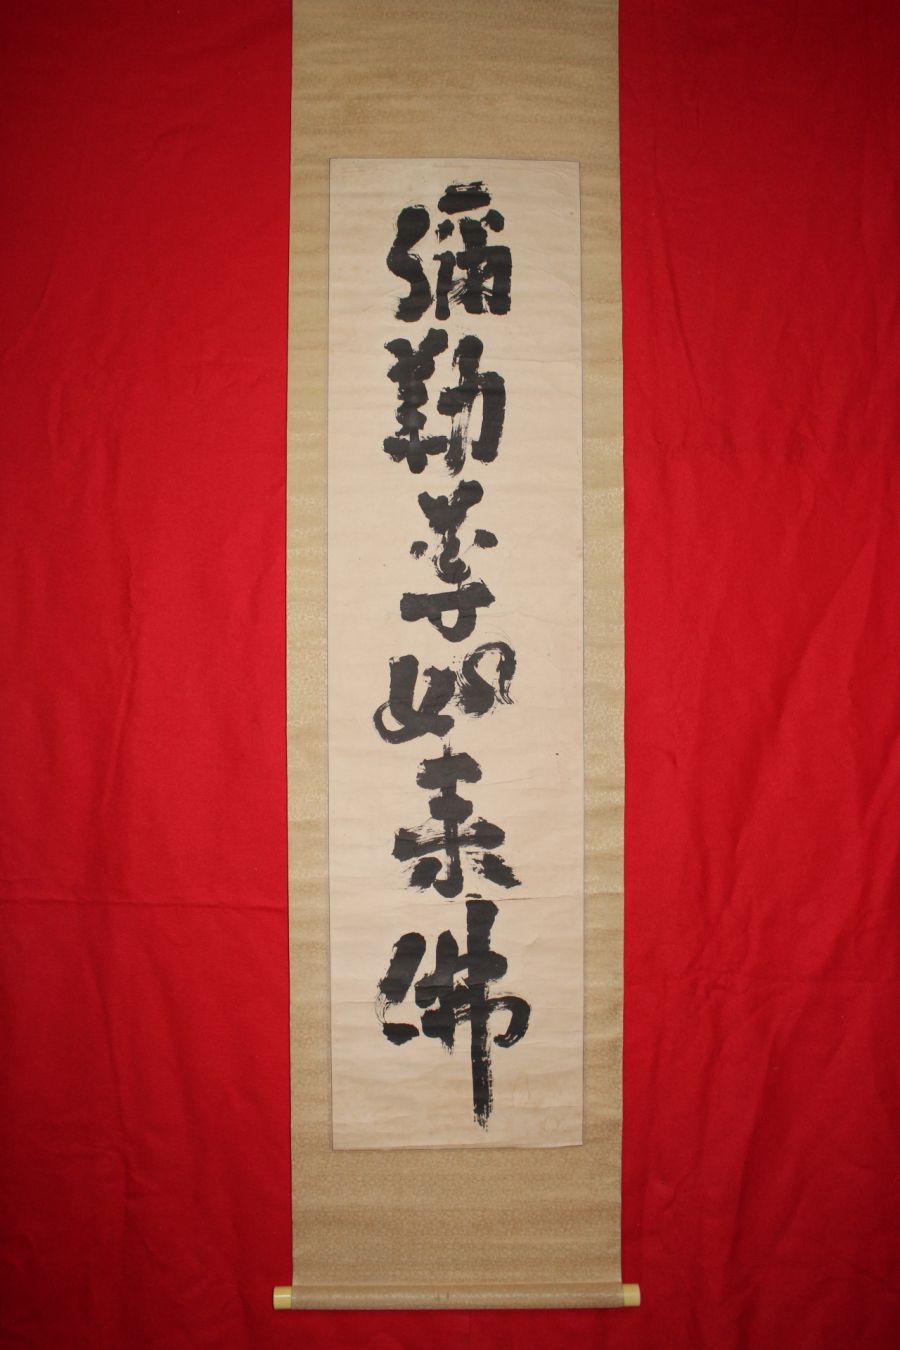 彌勒尊如来佛